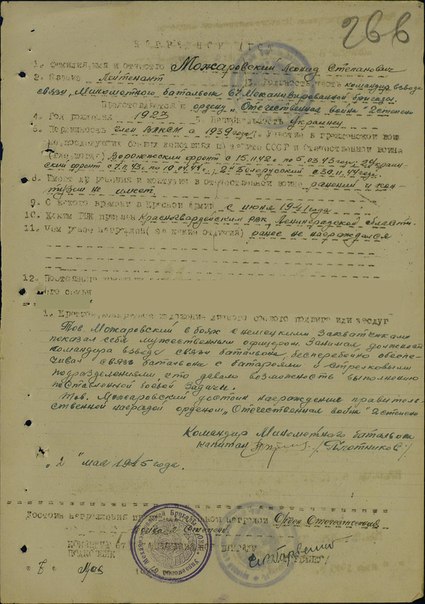 266
НАГРАДНОЙ ЛИСТ
1. Фамилия, имя и отчество Можаровский Леонид Степанович
2. Звание Лейтенант 3. Должность, часть командир взвода
связи, Минометного батальона 67 Механизированной бригады.
Представляется к ордену „Отечественная война" 2 степени
4. Год рождения 1923 5. Национальность Украинец
6. Партийность член ВЛКСМ с 1939 г. 7. Участие в гражданской войне,
последующих боевых действиях по защите СССР и отечественной войне
Воронежский фронт с 15.1.42 г. по 5.03.43 года,
ский фронт с 7.43 по 10.04.44 г. 2й Белорусский с 30.11.44 года
8. Имеет ли ранения и контузии в отечественной войне ранений и кон
тузий не имеет
9. С какого времени в Красной армии с июня 1941 года.
10. Каким РВК призван Красногвардейским РВК Ленинградской области.
11. Чем ранее награжден (за какие отличия) ранее не награждался
12. Постоянный
его семьи
1. Краткое, конкретное изложение личного боевого подвига или заслуг
Тов. Можаровский в боях с немецкими захватчиками
показал себя мужественным офицером. Занимая должность
командира взвода связи батальона, бесперебойно обеспе-
чивал связь батальона с батареями и стрелковыми
подразделениями что давало возможность выполнению
поставленной боевой задачи.
Тов. Можаровский достоин награждения правитель-
ственной наградой орденом „Отечественная война" 2 степени
Командир Минометного батальона
капитан /Плотников/
„2" мая 1945 года.
Достоин награждения правительственной наградой Орден Отечественная
война степени